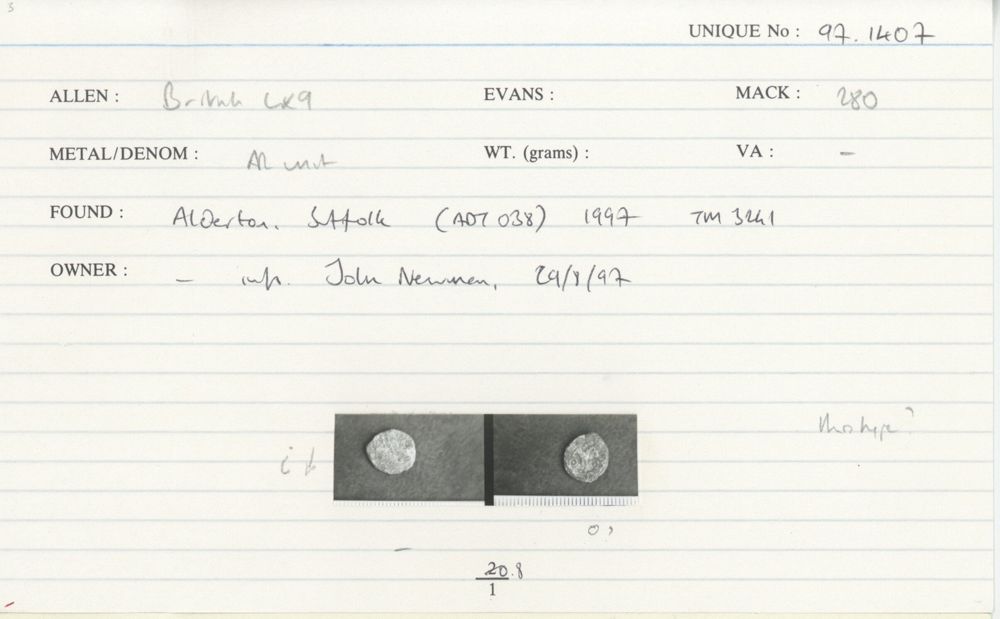 3
UNIQUE No : 97.1407
ALLEN : British LX9 EVANS : MACK : 280
METAL/DENOM : AR unit WT. (grams) : VA : –
FOUND : Alderton, Suffolk (ADT 038) 1997 TM 3241
OWNER : – info. John Newman, 29/8/97
this type?
20.8
1